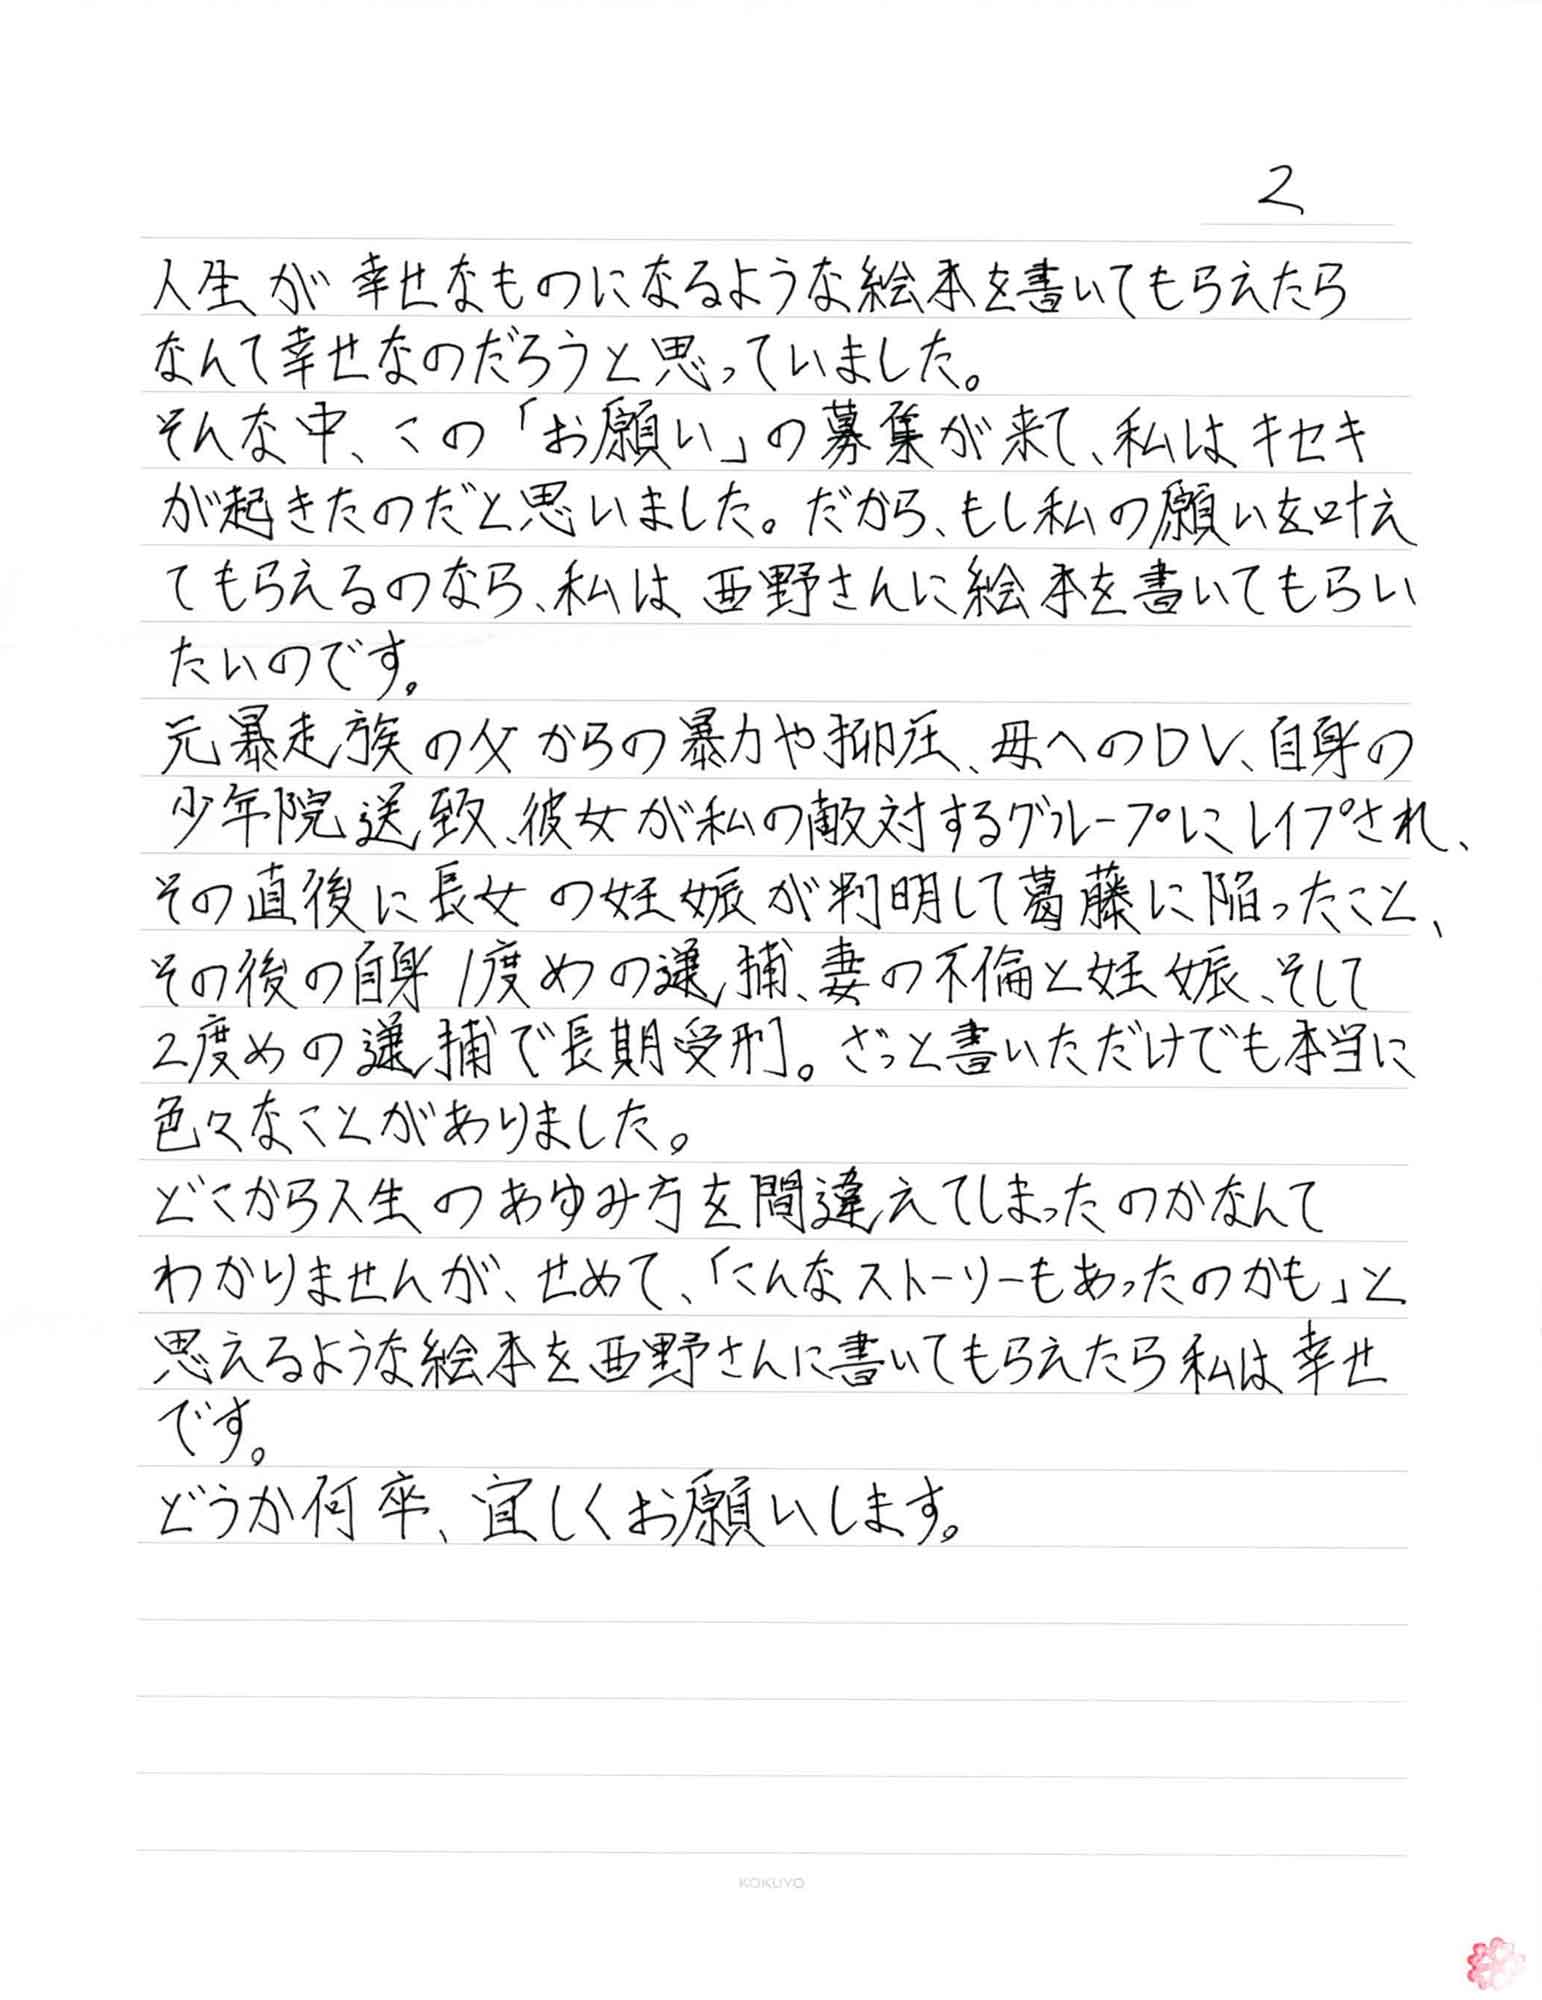 2
人生が幸せなものになるような絵本を書いてもらえたら
なんて幸せなのだろうと思っていました。
そんな中、この「お願い」の募集が来て、私はキセキ
が起きたのだと思いました。だから、もし私の願いを叶え
てもらえるのなら、私は西野さんに絵本を書いてもらい
たいのです。
元暴走族の父からの暴力や抑圧、母へのDV、自身の
少年院送致、彼女が私の敵対するグループにレイプされ、
その直後に長女の妊娠が判明して葛藤に陥ったこと、
その後の自身1度めの逮捕、妻の不倫と妊娠、そして
2度めの逮捕で長期受刑。ざっと書いただけでも本当に
色々なことがありました。
どこから人生のあゆみ方を間違えてしまったのかなんて
わかりませんが、せめて、「こんなストーリーもあったのかも」と
思えるような絵本を西野さんに書いてもらえたら私は幸せ
です。
どうか何卒、宜しくお願いします。
KOKUYO